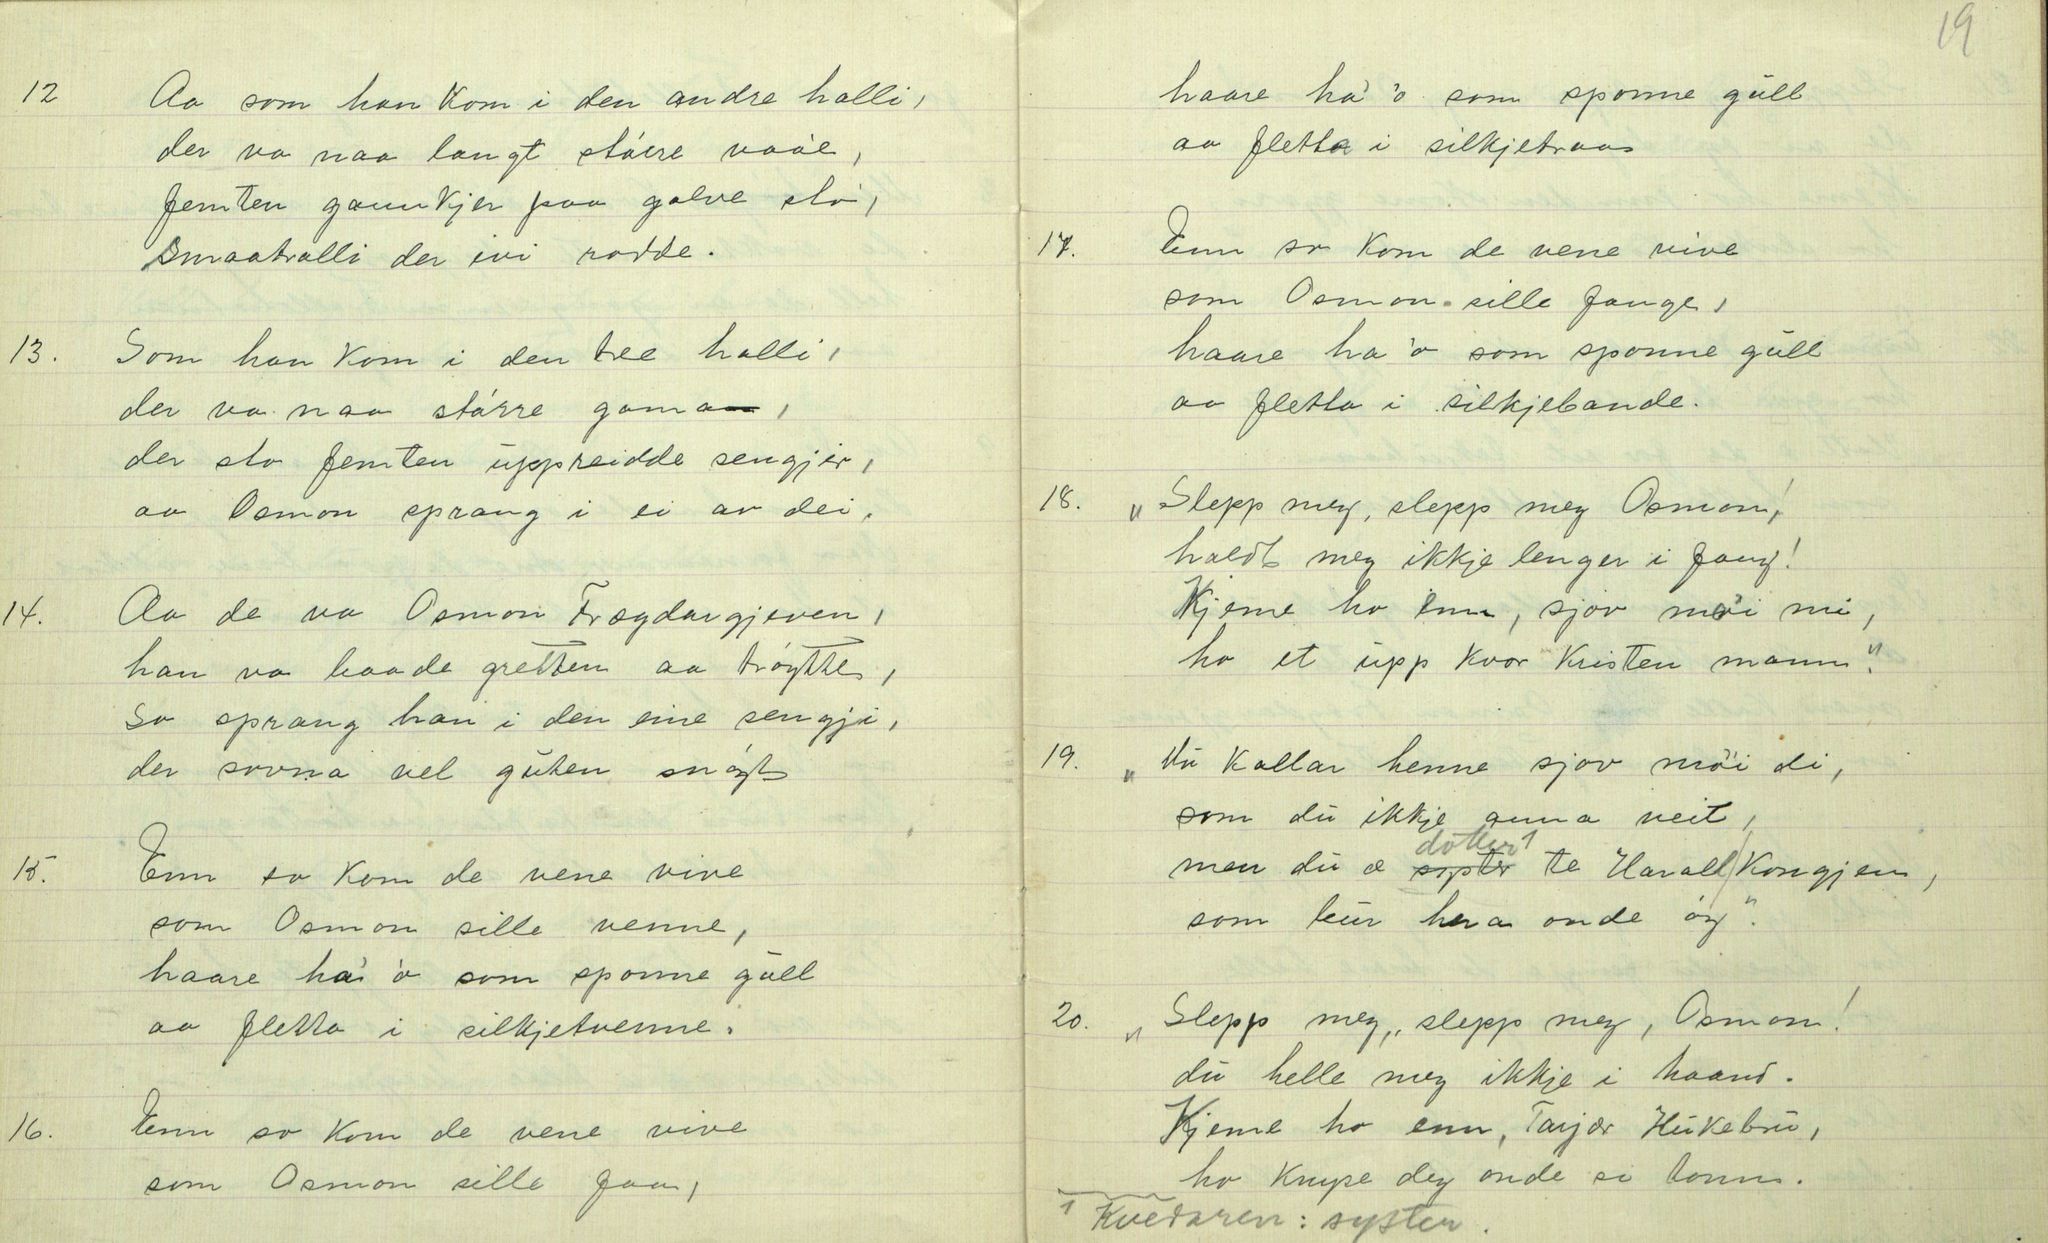 12 Aa som han kom i den andre halli,
der va naa langt stórre vaae,
femten gaunkjer paa golve sto,
smaatrolli der ivi rodde.
13. Som han kom i den tree halli,
der va naa stórre gama,
der sto femten üppreidde sengjir,
aa Osmon sprang i ei av dei.
14. Aa de va Osmon Frægdargjeven,
han va baade gretten aa tróytte,
so sprang han i den eine sengji,
der sovna vel güten snógt
15. Enn so kom de vene vive
som Osmon sille venne,
haare ha' 'o som sponne güll
aa fletta i silkjetvenne.
16. Enn so kom de vene vive
som Osmon sille faa,
19
haare ha' 'o som sponne güll
aa fletta i silkjetraas
17. Enn so kom de vene vive
som Osmon sille fange,
haare ha 'o som sponne güll
aa fletta i silkjebande.
18. „Slepp meg, slepp meg Osmon!
haldt meg ikkje lenger i fang!
Kjeme ho enn, sjov mói mi,
ho et üpp kvor kristen mann".
19. „Dü kallar henne sjov mói di,
som dü ikkje anna veit,
dótter 1
men dü æ syster te Harall kongjen,
som bür hera onde óy".
20. „Slepp meg, slepp meg, Osmon!
dü helle meg ikkje i haand.
Kjeme ho enn, Tarjær Hükebrü,
ho knype deg onde si tonn.
1 Kvedaren: syster.